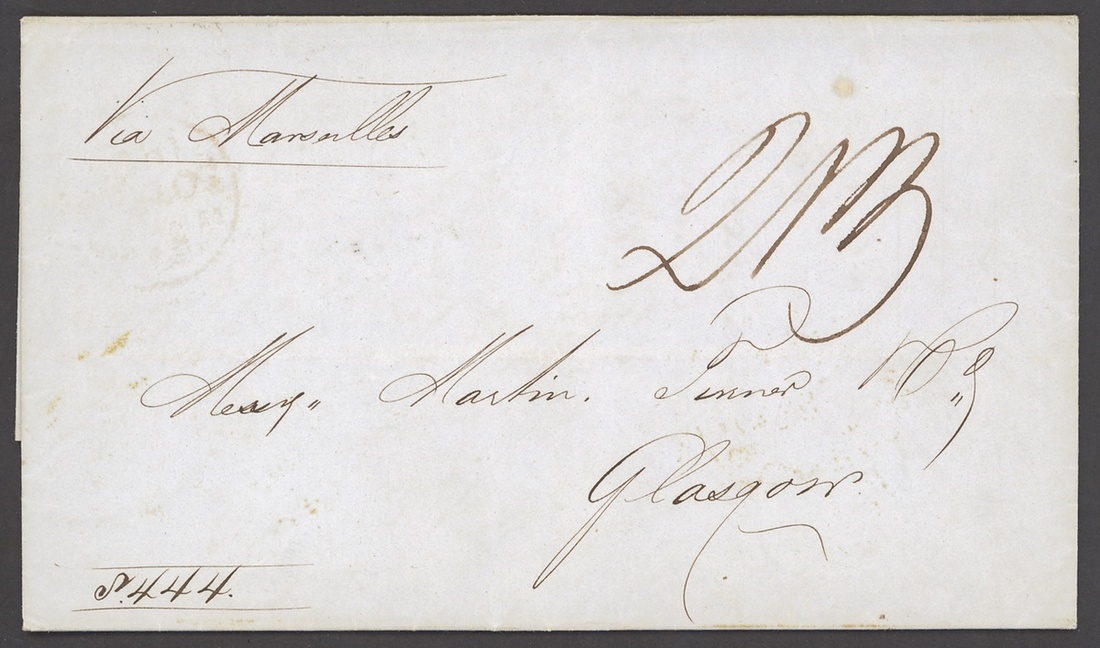 Via Marseilles
Messrs Martin. Turner & Co
Glasgow.
444.